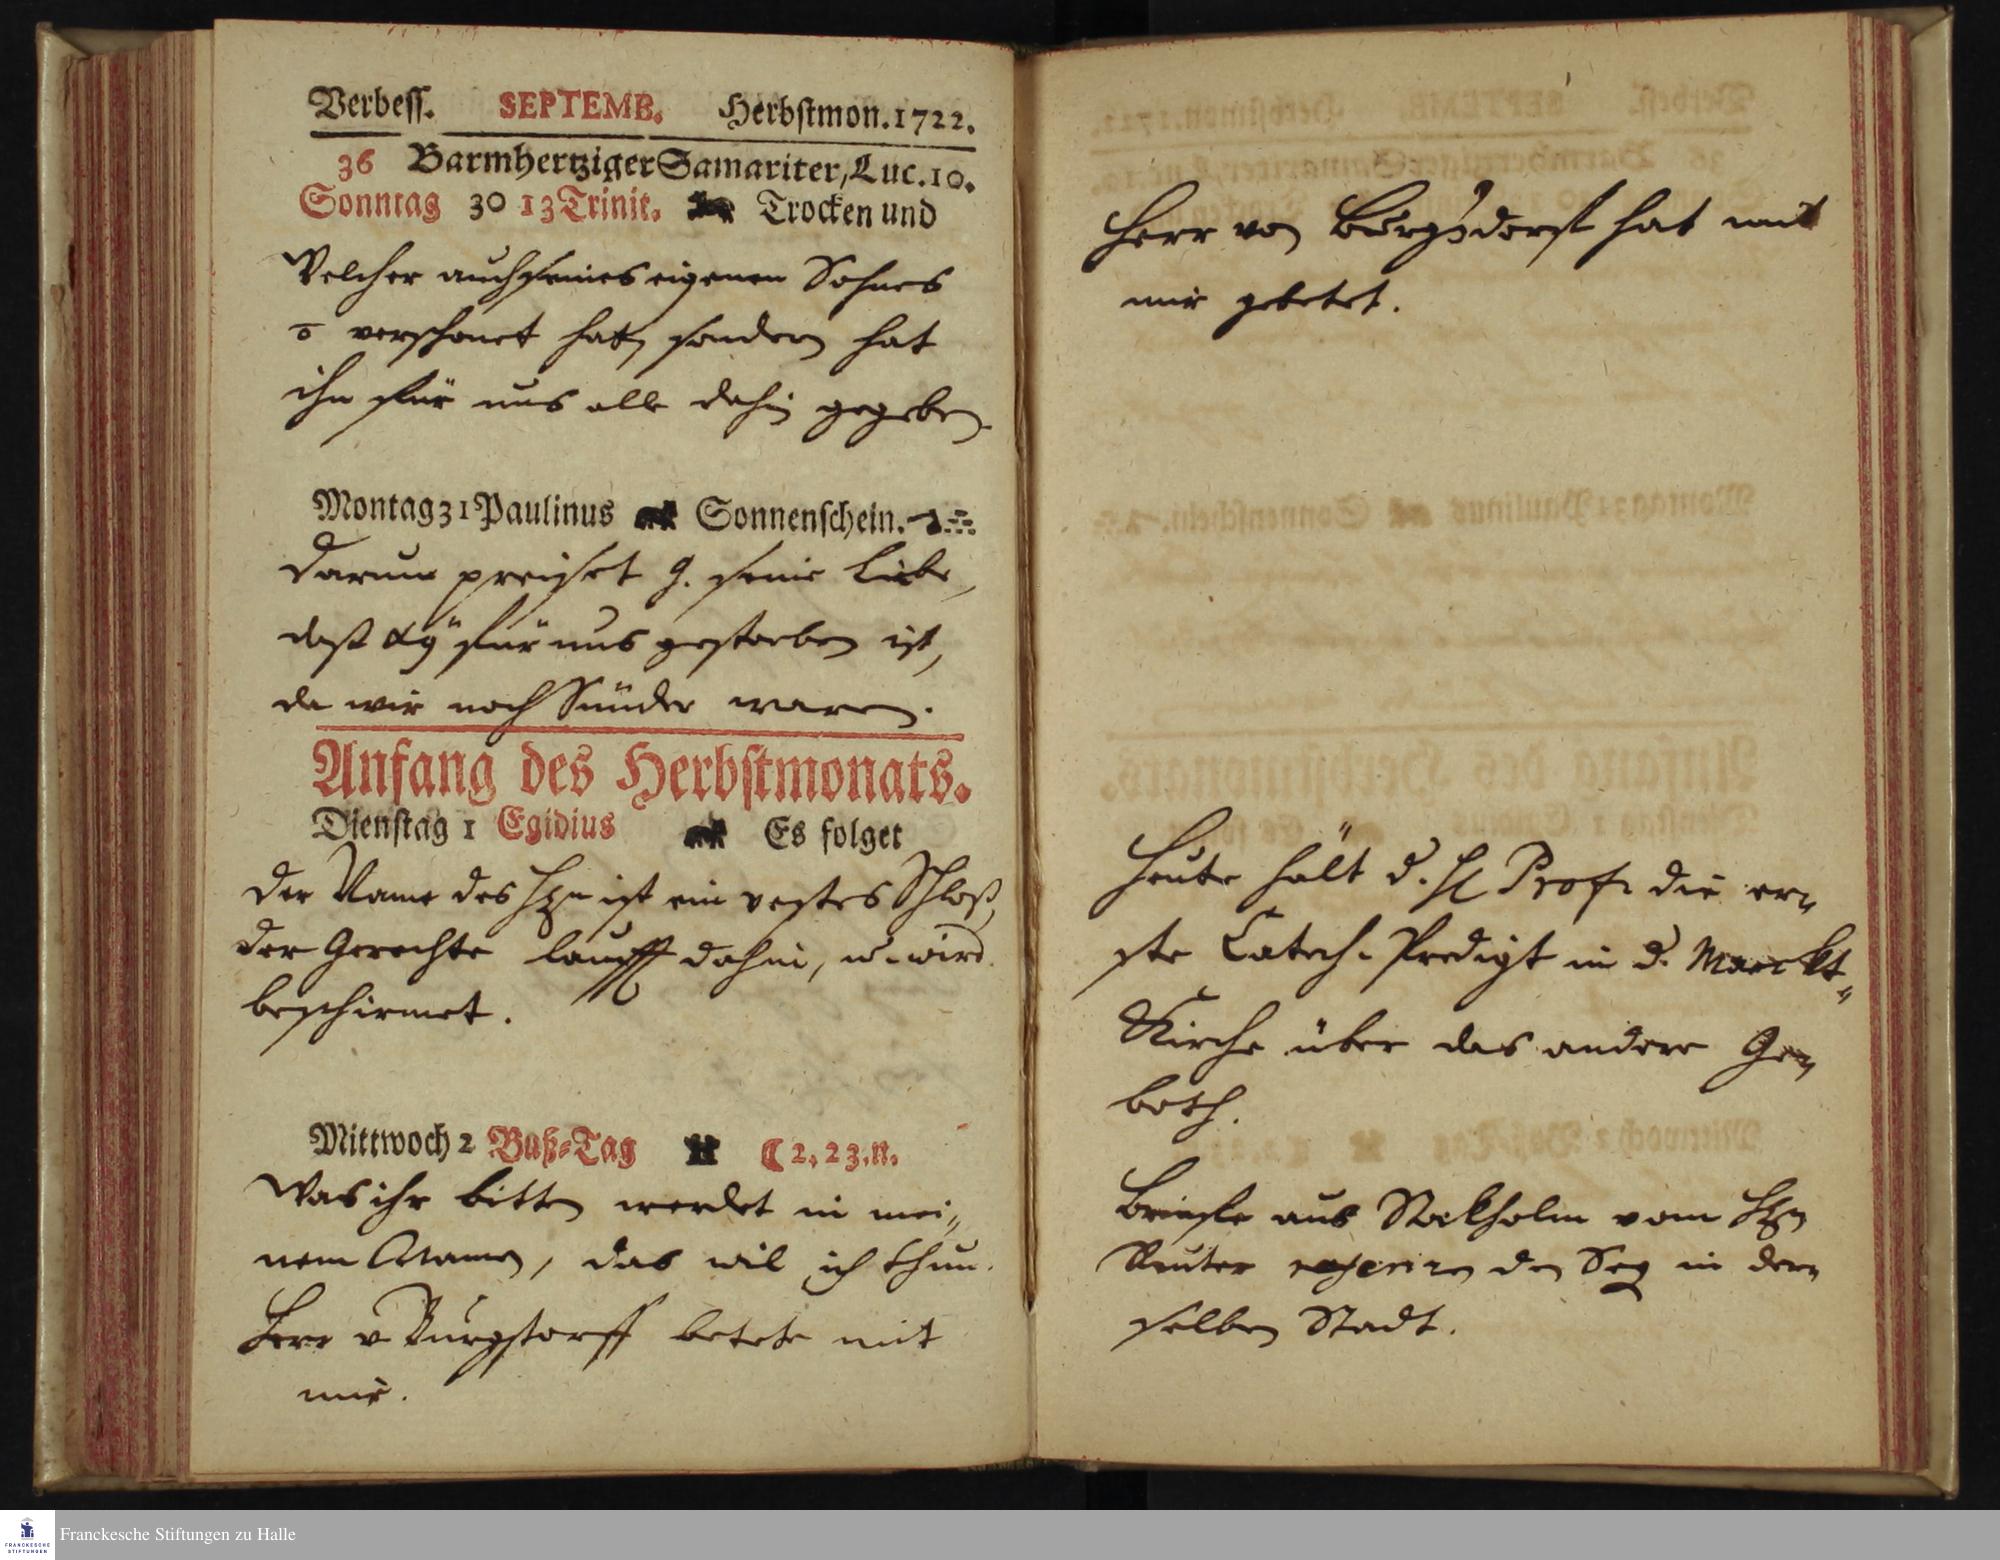 Verbess. SEPTEMB. Herbstmon. 1722.
36 Barmhertziger Samariter, Luc. 10.
Sonntag 30 13 Trinit. Trocken und
Welcher auch seines eigenen Sohnes
verschonet hat, sondern hat
ihn für uns alle dahin gegeben.
Montag 31 Paulinus Sonnenschein.
Darum preiset G. seine Liebe,
daß für uns gestorben ist,
da wir noch Sünder waren.
Anfang des Herbstmonats.
Dienstag 1 Egidius Es folget
Der Name des HErn ist ein vestes Schloß,
der Gerechte laufft dahin, u. wird
beschirmet.
Mittwoch 2 Buß-Tag ☾ 2. 23. n.
Was ihr bitten werdet in mei-
nem Namen, das wil ich thun.
Herr v Burgstorff betete mit
mir.
Herr von Burgsdorf hat mit
mir gebetet.
Heute hält d. H Prof. die er-
ste Catech. Predigt in d. Marckt-
Kirche über das andere Ge-
both.
Briefe aus Stockholm vom HEn
Reuter den Seg in der-
selben Stadt.
FRANCKESCHE STIFTUNGEN
Franckesche Stiftungen zu Halle